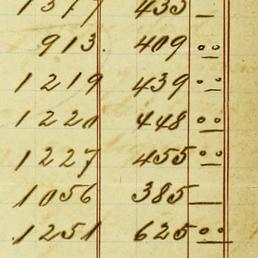 1377 435 —
913. 409 00
1219 439 00
1220 448 00
1227 455 00
1056 385 —
1251 625 00